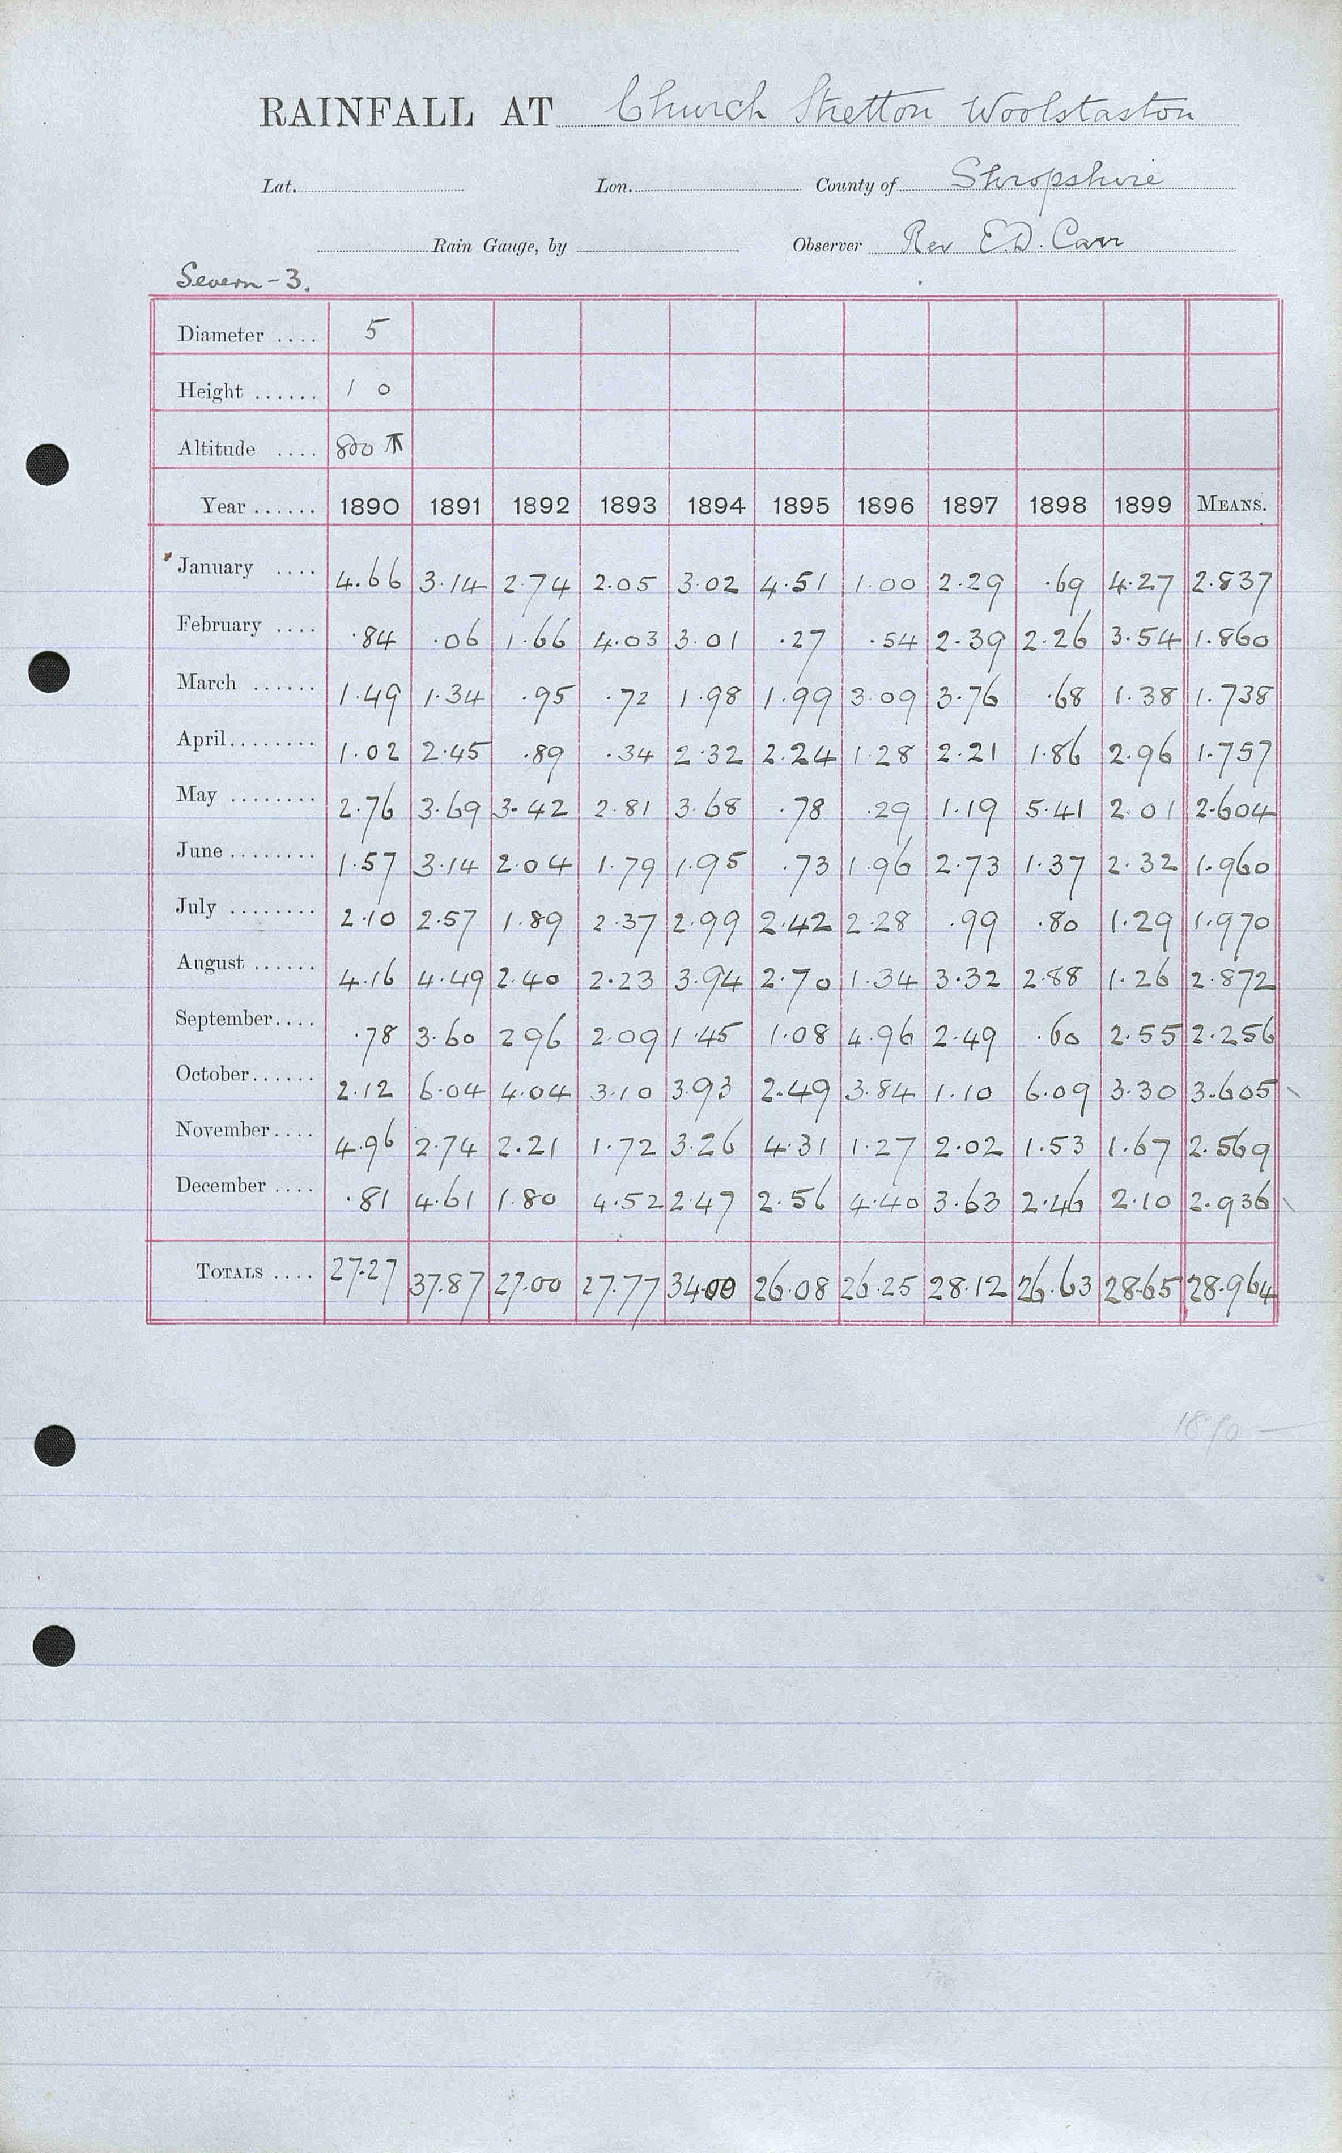 RAINFALL AT Church Stretton Woolstaston
Lat. Lon. County of Shropshire
Rain Gauge, by Observer Rev E.D. Carr
Severn - 3.
Diameter .... 5
Height ...... 1 0
Altitude .... 800
Year ...... 1890 1891 1892 1893 1894 1895 1896 1897 1898 1899 MEANS.
January .... 4.66 3.14 2.74 2.05 3.02 4.51 1.00 2.29 .69 4.27 2.837
February .... .84 .06 1.66 4.03 3.01 .27 .54 2.39 2.26 3.54 1.860
March ...... 1.49 1.34 .95 .72 1.98 1.99 3.09 3.76 .68 1.38 1.738
April........ 1.02 2.45 .89 .34 2.32 2.24 1.28 2.21 1.86 2.96 1.757
May ........ 2.76 3.69 3.42 2.81 3.68 .78 .29 1.19 5.41 2.01 2.604
June........ 1.57 3.14 2.04 1.79 1.95 .73 1.96 2.73 1.37 2.32 1.960
July ........ 2.10 2.57 1.89 2.37 2.99 2.42 2.28 .99 .80 1.29 1.970
August ...... 4.16 4.49 2.40 2.23 3.94 2.70 1.34 3.32 2.88 1.26 2.872
September.... .78 3.60 2 96 2.09 1.45 1.08 4.96 2.49 .60 2.55 2.256
October...... 2.12 6.04 4.04 3.10 3.93 2.49 3.84 1.10 6.09 3.30 3.605
November.... 4.96 2.74 2.21 1.72 3.26 4.31 1.27 2.02 1.53 1.67 2.569
December .... .81 4.61 1.80 4.52 2.47 2.56 4.40 3.63 2.46 2.10 2.936
TOTALS .... 27.27 37.87 27.00 27.77 34.00 26.08 26.25 28.12 26.63 28.65 28.964
1890 —